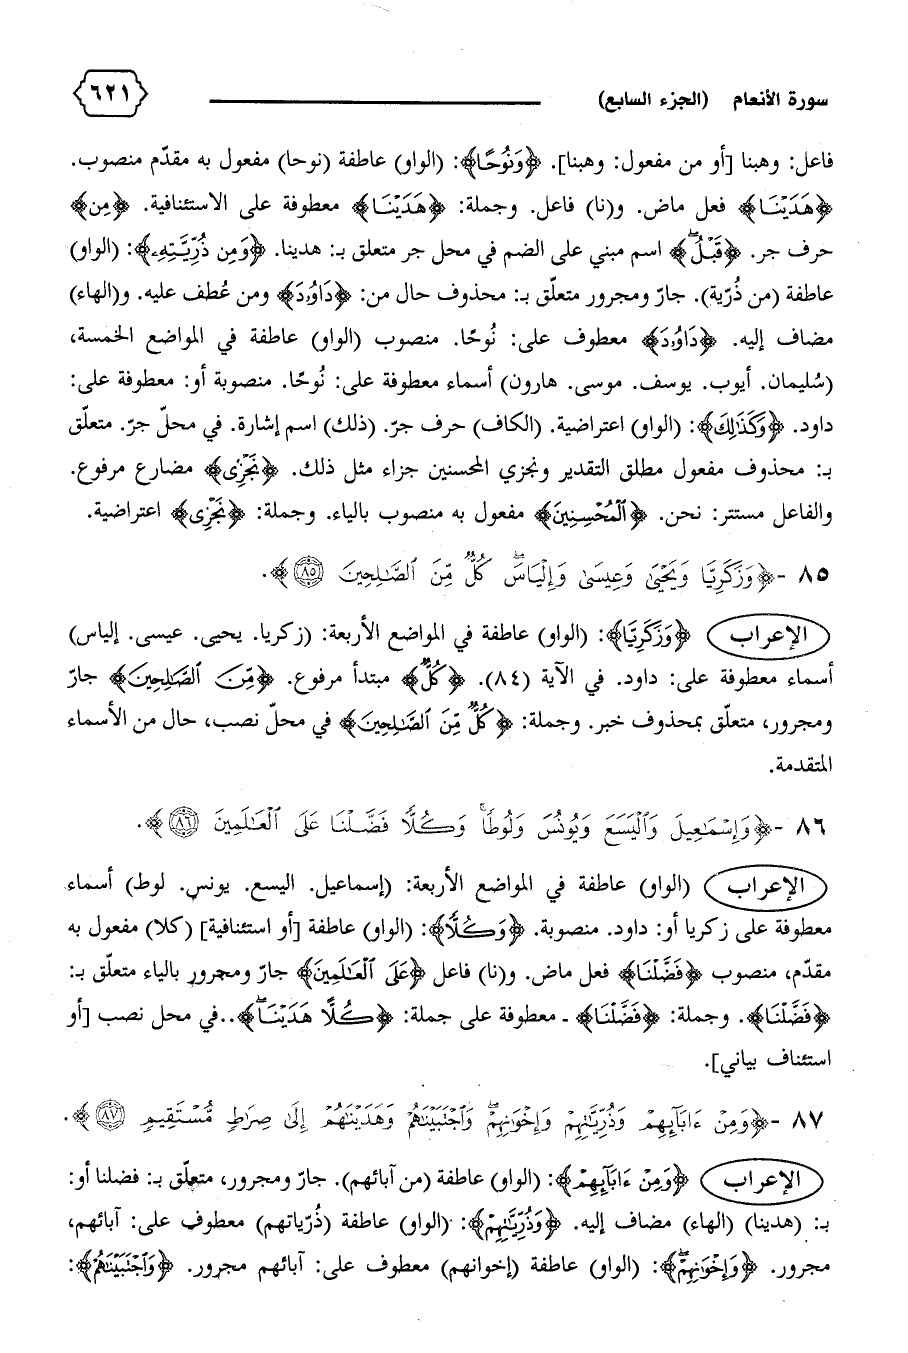 سورة الأنعام (الجزء السابع) ٦٢١
فاعل: وهبنا [أو من مفعول: وهبنا]. ﴿وَنُوحًا﴾: (الواو) عاطفة (نوحا) مفعول به مقدّم منصوب.
﴿هَدَيْنَا﴾ فعل ماض. و(نا) فاعل. وجملة: ﴿هَدَيْنَا﴾ معطوفة على الاستئنافية. ﴿مِن﴾
حرف جر. ﴿قَبْلُ﴾ اسم مبني على الضم في محل جر متعلق بـ: هدينا. ﴿وَمِن ذُرِّيَّتِهِۦ﴾: (الواو)
عاطفة (من ذُرّية). جارّ ومجرور متعلّق بـ: محذوف حال من: ﴿دَاوُۥدَ﴾ ومن عُطف عليه. و(الهاء)
مضاف إليه. ﴿دَاوُۥدَ﴾ معطوف على: نُوحًا. منصوب (الواو) عاطفة في المواضع الخمسة،
(سُليمان. أيوب. يوسف. موسى. هارون) أسماء معطوفة على: نُوحًا. منصوبة أو: معطوفة على:
داود. ﴿وَكَذَٰلِكَ﴾: (الواو) اعتراضية. (الكاف) حرف جرّ. (ذلك) اسم إشارة. في محلّ جرّ. متعلّق
بـ: محذوف مفعول مطلق التقدير ونجزي المحسنين جزاء مثل ذلك. ﴿نَجْزِى﴾ مضارع مرفوع.
والفاعل مستتر: نحن. ﴿ٱلْمُحْسِنِينَ﴾ مفعول به منصوب بالياء. وجملة: ﴿نَجْزِى﴾ اعتراضية.
٨٥ - ﴿وَزَكَرِيَّا وَيَحْيَىٰ وَعِيسَىٰ وَإِلْيَاسَ ۖ كُلٌّ مِّنَ ٱلصَّـٰلِحِينَ ٨٥﴾.
الإعراب ﴿وَزَكَرِيَّا﴾: (الواو) عاطفة في المواضع الأربعة: (زكريا. يحيى. عيسى. إلياس)
أسماء معطوفة على: داود. في الآية (٨٤). ﴿كُلٌّ﴾ مبتدأ مرفوع. ﴿مِّنَ ٱلصَّـٰلِحِينَ﴾ جارّ
ومجرور، متعلّق بمحذوف خبر. وجملة: ﴿كُلٌّ مِّنَ ٱلصَّـٰلِحِينَ﴾ في محلّ نصب، حال من الأسماء
المتقدمة.
٨٦ - ﴿وَإِسْمَـٰعِيلَ وَٱلْيَسَعَ وَيُونُسَ وَلُوطًا ۚ وَكُلًّا فَضَّلْنَا عَلَى ٱلْعَـٰلَمِينَ ٨٦﴾.
الإعراب (الواو) عاطفة في المواضع الأربعة: (إسماعيل. اليسع. يونس. لوط) أسماء
معطوفة على زكريا أو: داود. منصوبة. ﴿وَكُلًّا﴾: (الواو) عاطفة [أو استئنافية] (كلا) مفعول به
مقدّم، منصوب ﴿فَضَّلْنَا﴾ فعل ماض. و(نا) فاعل ﴿عَلَى ٱلْعَـٰلَمِينَ﴾ جارّ ومجرور بالياء متعلّق بـ:
﴿فَضَّلْنَا﴾. وجملة: ﴿فَضَّلْنَا﴾ ـ معطوفة على جملة: ﴿كُلًّا هَدَيْنَا ۚ﴾..في محل نصب [أو
استئناف بياني].
٨٧ - ﴿وَمِنْ ءَابَآئِهِمْ وَذُرِّيَّـٰتِهِمْ وَإِخْوَٰنِهِمْ ۖ وَٱجْتَبَيْنَـٰهُمْ وَهَدَيْنَـٰهُمْ إِلَىٰ صِرَٰطٍ مُّسْتَقِيمٍ ٨٧﴾.
الإعراب ﴿وَمِنْ ءَابَآئِهِمْ﴾: (الواو) عاطفة (من آبائهم). جارّ ومجرور، متعلّق بـ: فضلنا أو:
بـ: (هدينا) (الهاء) مضاف إليه. ﴿وَذُرِّيَّـٰتِهِمْ﴾: (الواو) عاطفة (ذُرّياتهم) معطوف على: آبائهم،
مجرور. ﴿وَإِخْوَٰنِهِمْ ۖ﴾: (الواو) عاطفة (إخوانهم) معطوف على: آبائهم مجرور. ﴿وَٱجْتَبَيْنَـٰهُمْ﴾: